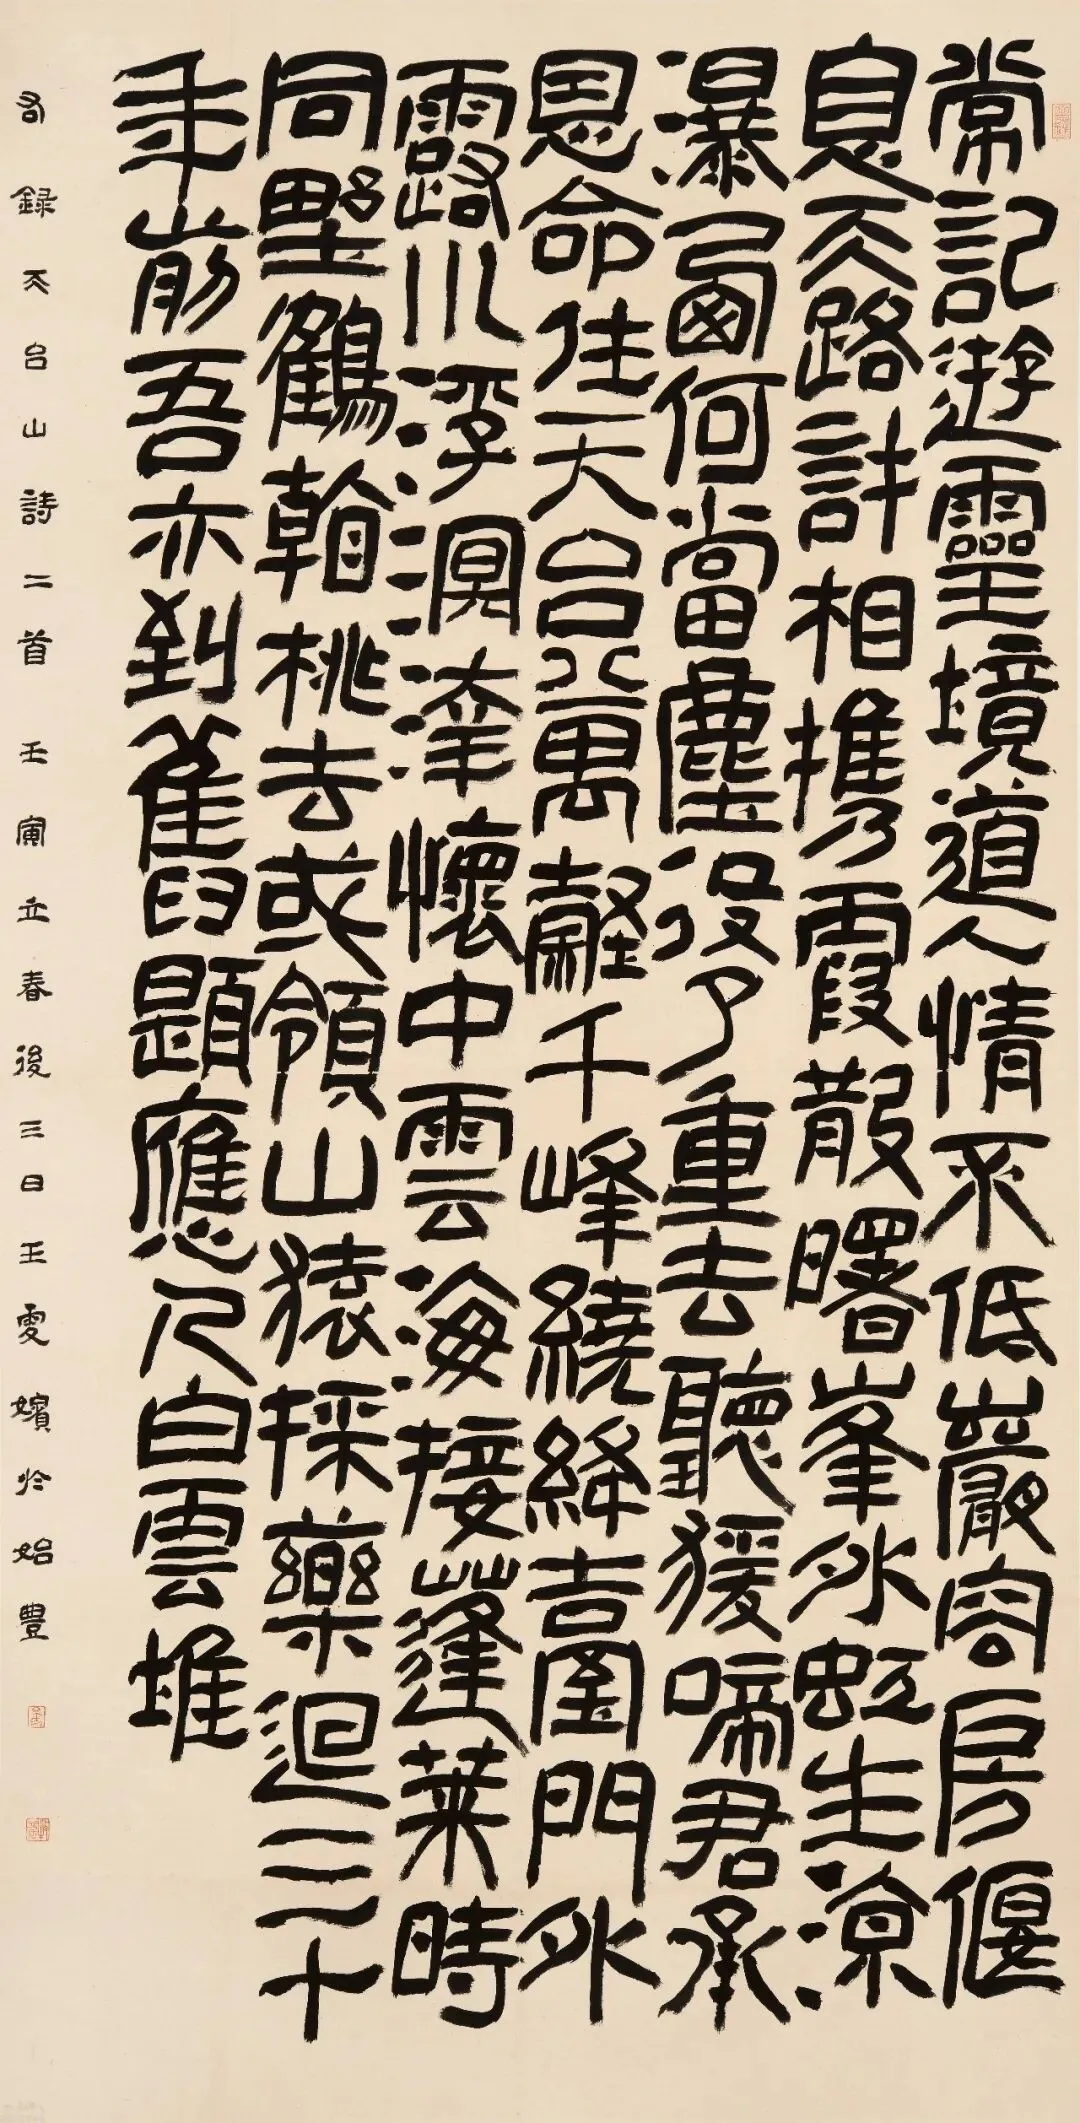 常記遊靈境道人情不低巖容房偃
息天路計相攜霞散曙峯外虹生涼
瀑西何當塵役了重去聽猨啼君承
恩命往天台萬壑千峰繞絳臺門外
露川浮溟涬懷中雲海接蓬萊時
同野鶴輸桃去或領山猿採藥迴三十
年前吾亦到舊題應入白雲堆
右録天台山詩二首 壬寅立春後三日王雯嬪於始豐